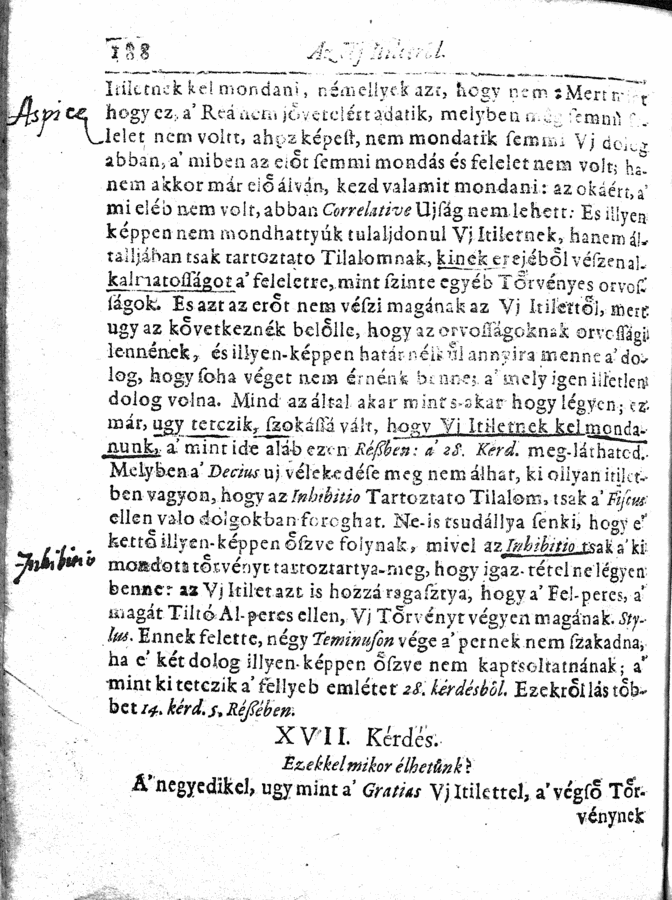 188 Az Uj Itiletről.
Itiletnek kel mondani, némellyek azt, hogy nem: Mert mint
Aspice
hogy ez, a' Reá nem jövetelért adatik, melyben még semmi fe-
lelet nem voltt, ahoz képeſt, nem mondatik ſemmi Vj dolog
abban, a' miben az előt ſemmi mondás és felelet nem volt; ha-
nem akkor már elő álván, kezd valamit mondani: az okáért, a'
mi eléb nem volt, abban Correlative Ujſág nem lehett: Es illyen
képpen nem mondhattyúk tulaljdonul Vj Itiletnek, hanem ál-
talljában tsak tartoztato Tilalomnak, kinek erejéből véſzen al-
kalmatoſſágot a' feleletre, mint ſzinte egyéb Tőrvényes orvoſ-
ságok. Es azt az erőt nem véſzi magának az Vj Itilettől, mert
ugy az kővetkeznék belőlle, hogy az orvoſſágoknak orvoſſági
lennének, és illyen-képpen határ nélkűl annyira menne a' do-
log, hogy ſoha véget nem érnénk benne; a' mely igen illetlen
dolog volna. Mind az által akar mint s-akar hogy légyen; ez
már, ugy tetczik, ſzokáſſá vált, hogy Vj Itiletnek kel monda-
nunk, a' mint ide aláb ezen Réßben: a' 28. Kerd. meg-láthatod.
Melyben a' Decius uj vélekedéſe meg nem álhat, ki ollyan itilet-
ben vagyon, hogy az Inhibitio Tartoztato Tilalom, tsak a' Fiſcus
ellen valo dolgokban foroghat. Ne-is tsudállya ſenki, hogy e'
kettő illyen-képpen őſzve folynak, mivel az Inhibitio tsak a' ki
Inhibitio
mondott tőrvényt tartoztartya-meg, hogy igaz-tétel ne légyen
benne: az Vj Itilet azt is hozzá ragaſztya, hogy a' Fel-peres, a'
magát Tiltó Al-peres ellen, Vj Tőrvényt végyen magának. Sty-
lus. Ennek felette, négy Teminuſon vége a' pernek nem ſzakadna,
ha e' két dolog illyen-képpen őſzve nem kaptsoltatnának; a'
mint ki tetczik a' fellyeb emlétet 28. kérdésből. Ezekről lás tőb-
bet 14. kérd. 5. Réßében.
XVII. Kérdés.
Ezekkel mikor élhetűnk?
A' negyedikel, ugy mint a' Gratias Vj Itilettel, a' végſő Tőr-
vénynek